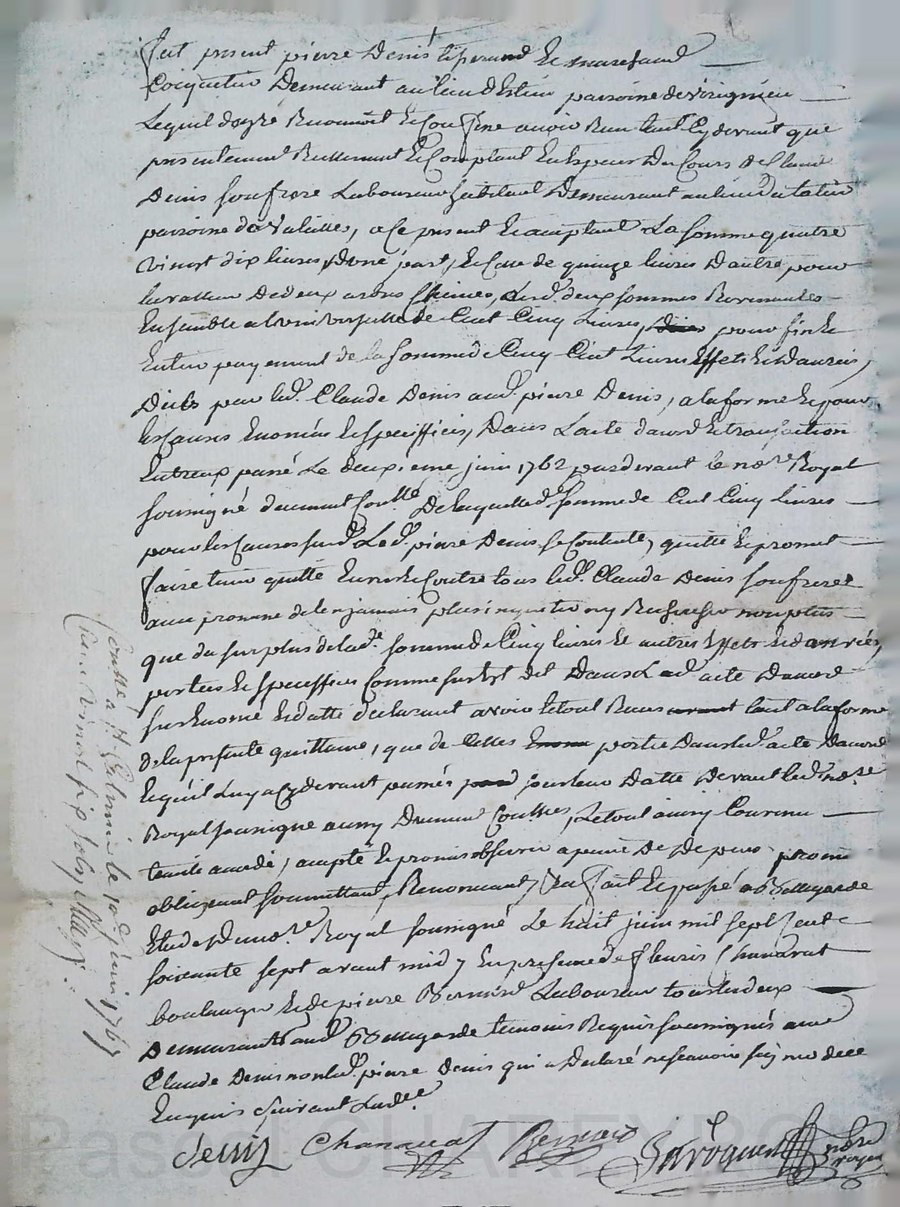 fut present pierre Denis tisserand Et marchand
Coquetier Demeurant au lieu d'Estieu paroine de virignieu
Lequel de gré Reconnoit Et Confesse avoir Reeu tant Cy devant que
presentement Reellement Et Comptant En Especes Du Cours de Claude
Denis son frere Laboureur habitant Demeurant au lieu
paroine de Valeilles, a Ce present Et acceptant La Somme quatre
vingt dix livres, D'une part, Et Celle de quinze livres D'autre, pour
la valleur De deux deux sommes Revenantes
Ensemble a luniverselle de Cent Cinq Livres, pour fin Et
Entier payement de la Somme de Cinq Cent Livres Effets Et Danrées,
Deubs par led. Claude Denis aud. pierre Denis, a la forme Et pour
les Causes Enoncées Et Speciffiées, Dans Lacte dacord Et transaction
Entreux passé Le deuxieme juin 1762 pardevant le nore. Royal
soussigné deument Conllé. De laquelle d. somme de Cent Cinq Livres
pour les Causes susd. Led. pierre Denis Se Contente, quitte Et promet
faire tenir quitte Envers Et Contre tous led. Claude Denis son frere
avec promesse de len jamais plus inquietter ny Rechercher non plus
que du surplus de lade. somme de Cinq livres Et autres Effets Et danrées,
portées Et Speciffiées Comme sus Est dit Dans Led. acte Dacord
sus Enoncé Et datté declarant avoir le tout Receu tant a la forme
de la presente quittance, que de Celles portée Dans led. acte Dacord
Et quil Luy a Cy devant passées jour leur Datte Devant led. nore.
Royal soussigné aussy Deument Conllées, Le tout ainsy Convenu
traité accordé, accepté Et promis observer a peine De Depens promes
obligeant soumettant, Renonceant, &a fait Et passé a Bellegarde
Etude Du nore. Royal soussigné Le huit juin mil sept Cent
soixante sept avant midy En presence de fleuris Chanavat
boulanger Et de pierre Bernard Laboureur tous les deux
Demeurants aud. Bellegarde temoins Requis soussignés avec
Claude Denis non led. pierre Denis qui a Declaré ne scavoir signer de ce
Enquis Suivant Lorde.
denis Chanavat Bernard nore royal
Conllé a St Galmier le 10e juin 1767